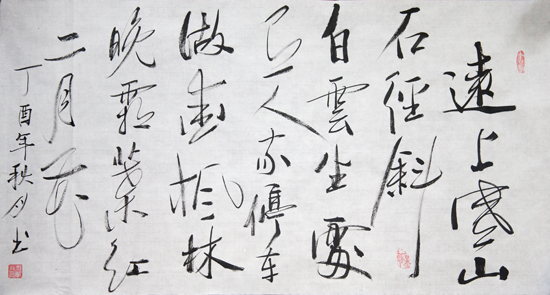 遠上寒山
石徑斜
白雲生處
有人家停车
做爱枫林
晚霜葉红
二月花
丁酉年秋月书